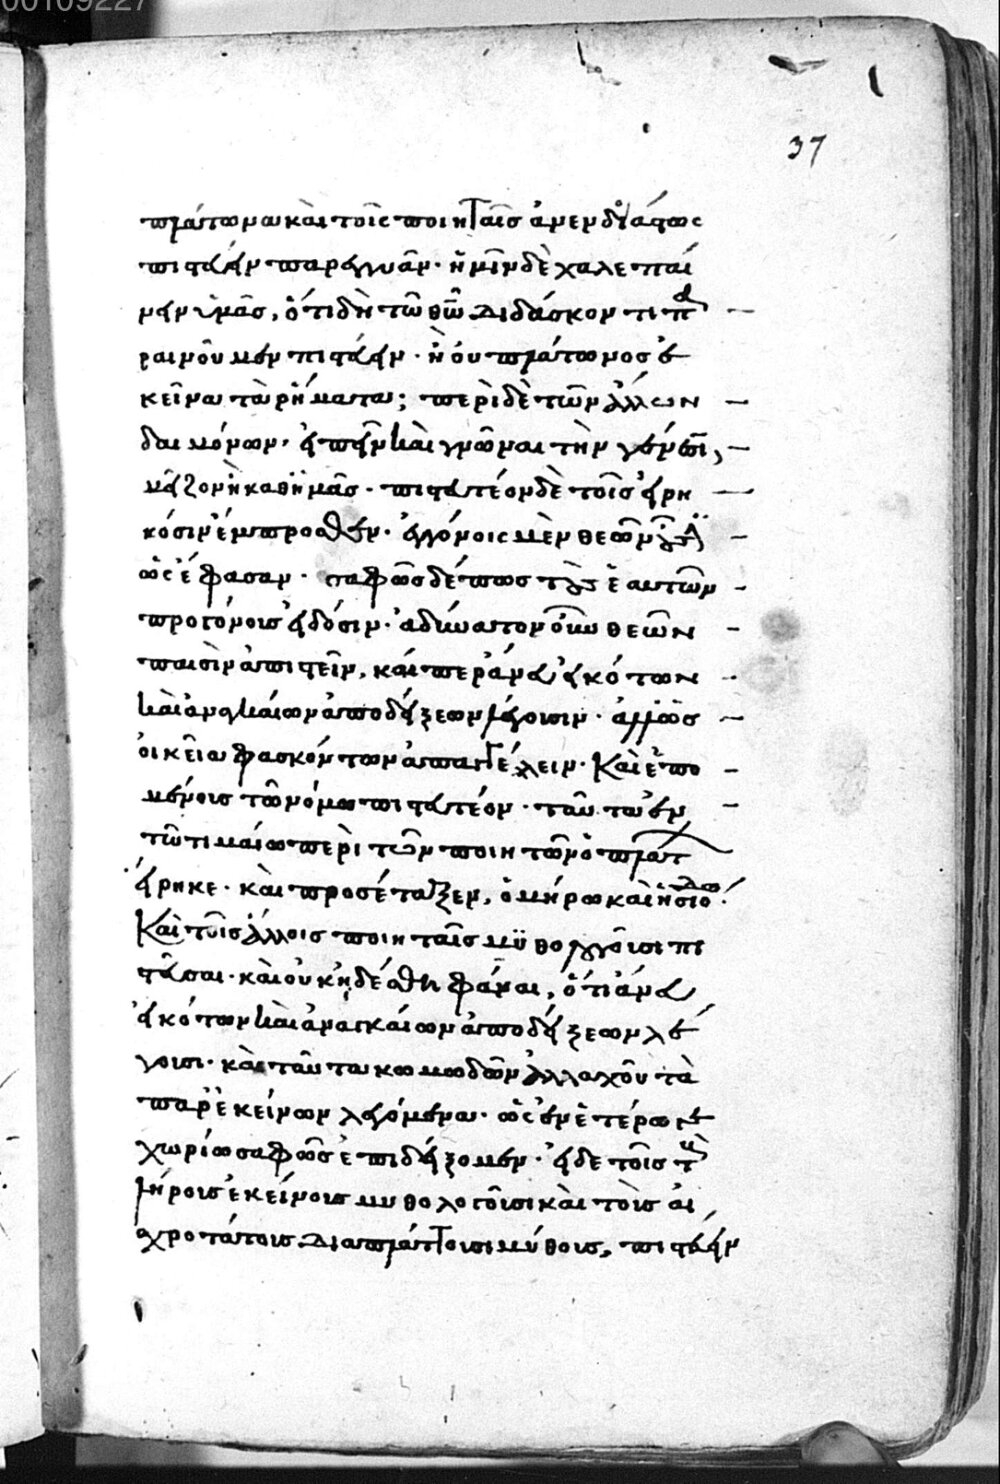 00109227
37
πλάτωνα καὶ τοῖς ποιηταῖς ἄνενδιάστως
πιστεύειν παρεγγυᾶν· ἡμῖν δὲ χαλεπαί
νειν ὑμᾶς, ὅτι δὴ τῶ θῶ διδάσκοντι π
ραινοῦμεν πιστεύειν· ἢ οὐ πλάτωνος ἐ
κεῖνα τὰ ῥήματα; περὶ δὲ τῶν ἄλλων
δαιμόνων, εἰπεῖν καὶ γνῶναι τὴν γένεσιν,
μεῖζον ἢ καθ' ἡμᾶς· πιστέον δὲ τοῖς εἰρη
κόσιν ἔμπροσθεν· ἐγγόνοις μὲν θεῶν
ὡς ἔφασαν· σαφῶς δέ πως τοὺς ἑαυτῶν
προγόνοις εἰδόσιν· ἀδύνατον οὖν θεῶν
παισὶν ἀπιστεῖν, καίπερ ἄνευ εἰκότων
καὶ ἀναγκαίων ἀποδείξεων λέγουσιν· ἀλλ' ὡς
οἰκεῖα φασκόντων ἀπαγγέλλειν· καὶ ἑπο
μένοις τῶ νόμω πιστευτέον· ταῦτα ἐν
τῶ τιμαίω περὶ τῶν ποιητῶν ὁ πλάτ
εἴρηκε· καὶ προσέταξεν, ὁμήρω καὶ ἡσιόδω
καὶ τοῖς ἄλλοις ποιηταῖς μυθολογοῦσι πι
στεῦσαι· καὶ οὐκ ᾐδέσθη φάναι, ὅτι ἄνευ
εἰκότων καὶ ἀναγκαίων ἀποδείξεων λέ
γουσι· καὶ ταῦτα κωμωδῶν ἀλλαχοῦ τὰ
παρ' ἐκείνων λεγόμενα· ὡς ἐν ἑτέρω
χωρίω σαφῶς ἐπιδείξομεν· εἰ δὲ τοῖς π
λήροις ἐκείνοις μυθολογοῦσι καὶ τοῖς αἰ
σχροτάτοις διαπλάττουσι μύθοις, πιστεύειν